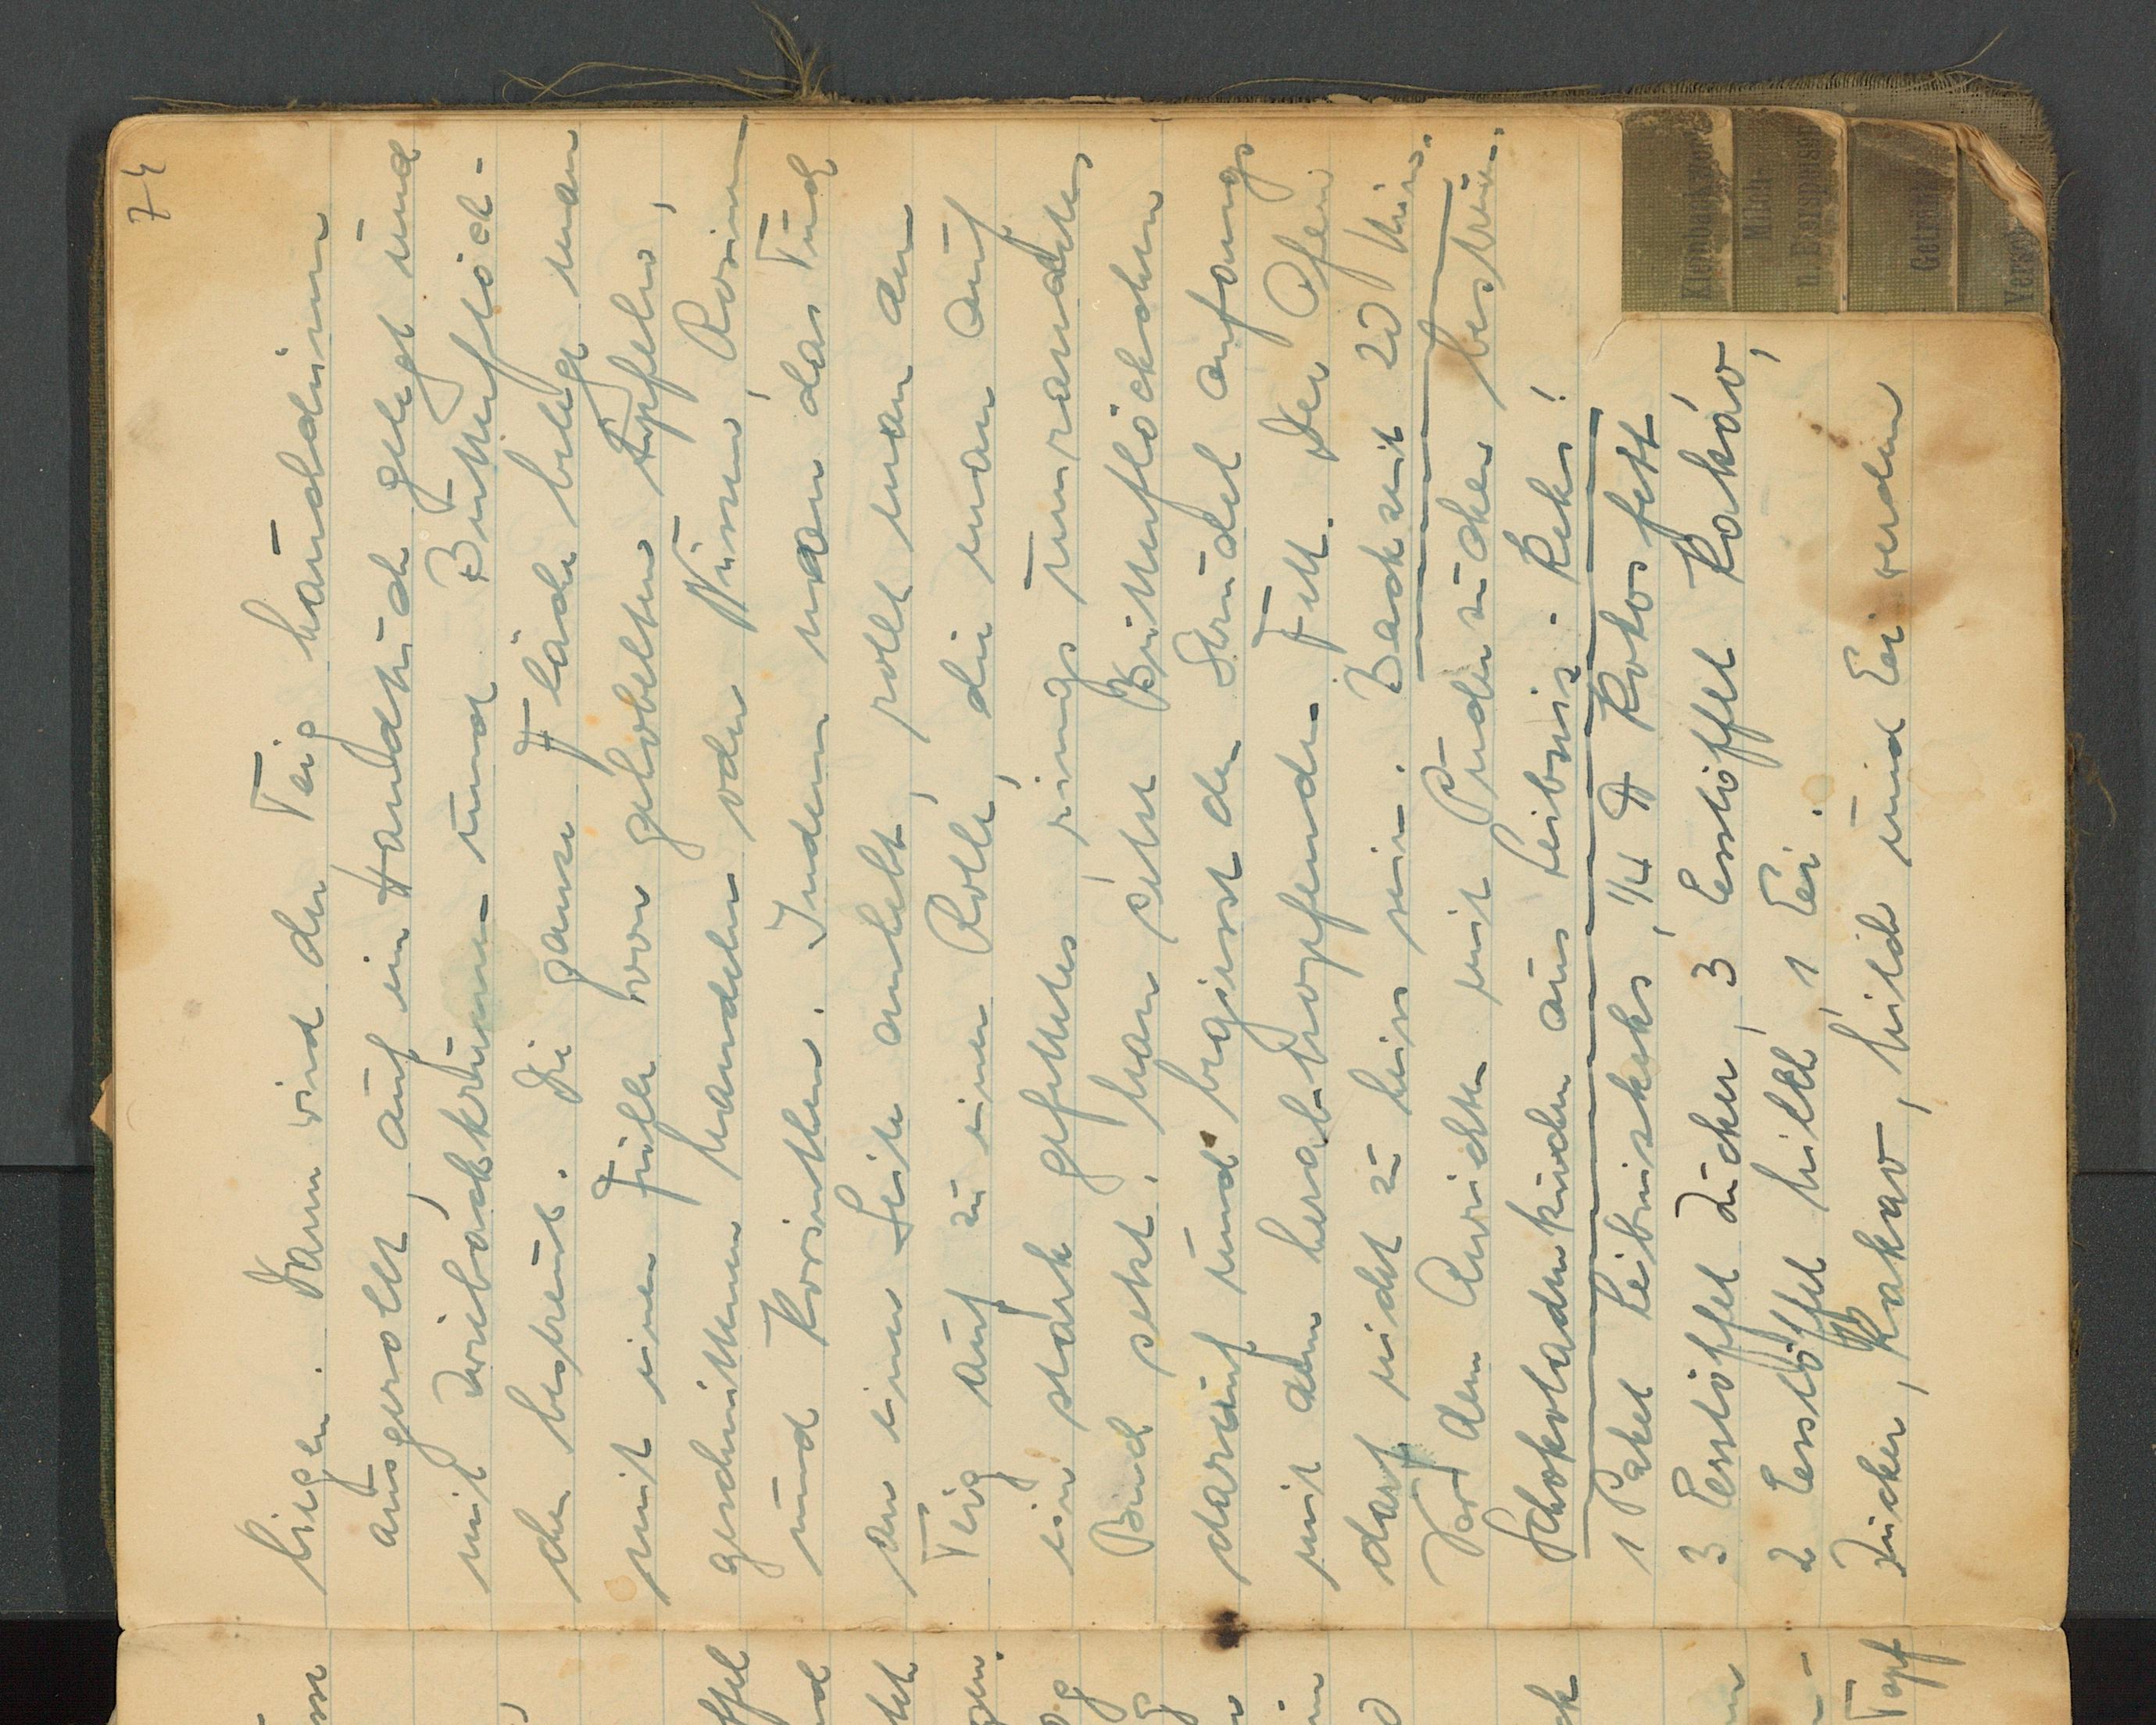 74
liegen. Dann wird der Teig hauchdünn
ausgerollt, auf ein Handtuch gelegt und
mit Zwiebackkrumen und Butterflöck-
chen bestreut. Die ganze Fläche belegt man
mit einer Fülle von gehobelten Äpfeln,
geschnittenen Mandeln oder Nüssen, Rosinen
und Korinthen. Indem man das Tuch
an einer Seite anhebt, rollt man den
Teig auf zu einer Rolle, die man auf
ein stark gefettetes rings umrandetes
Blech setzt. Man setzt Butterflöckchen
darauf und begiesst den Strudel anfangs
mit dem herabtropfenden Fett. Der Ofen
darf nicht zu heiss sein. Backzeit 20 Min.
Vor dem Anrichten mit Puderzucker bestreu-.
Schokoladenkuchen aus Leibniz-Keks!
1 Paket Leibnizkeks, 1/4 ℔ Kokosfett
3 Esslöffel Zucker, 3 Esslöffel Kakao,
2 Esslöffel Milch, 1 Ei.
Zucker, Kakao, Milch und Ei werden
ffel
Topf
Kleinbackwerk
Milch
u. Eierspeisen
Getränke